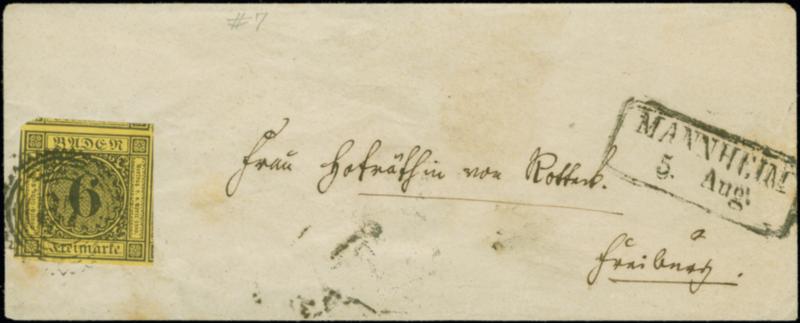 #7
BADEN
6
Freimarke
MANNHEIM
5. Aug:
Frau Hofräthin von Rotteck.
Freiburg.